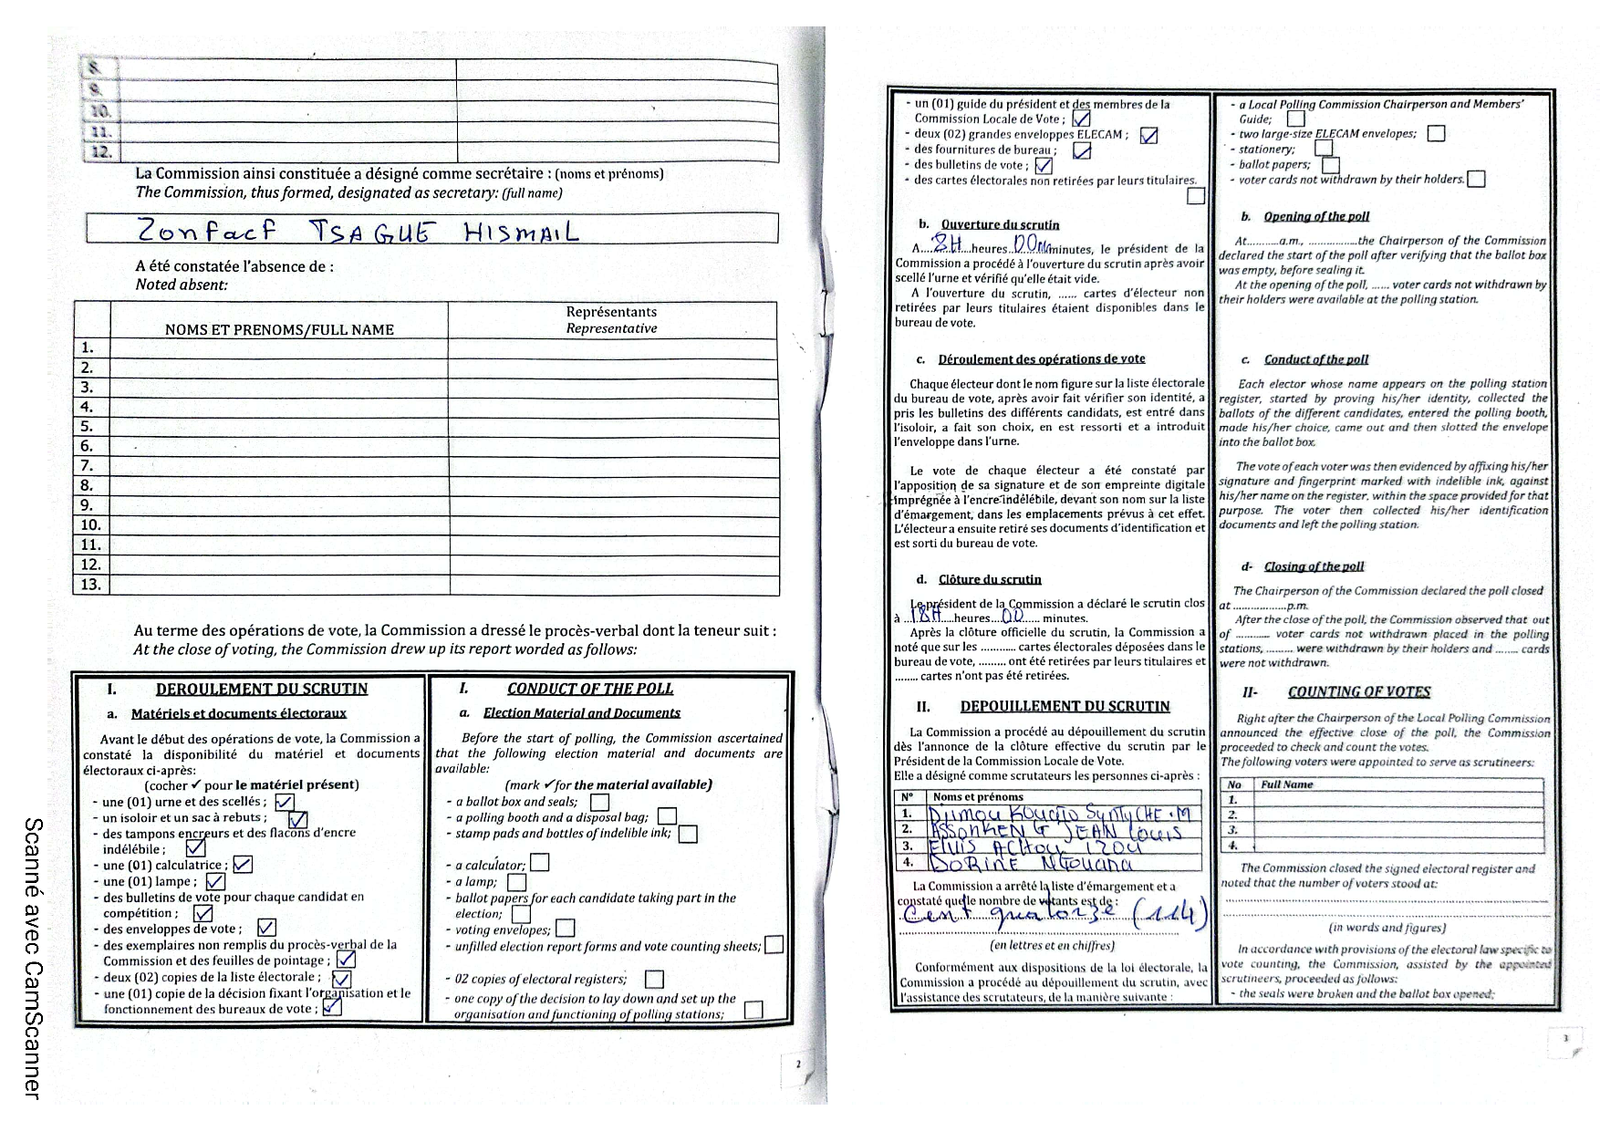 8.
9.
10.
11.
12.
La Commission ainsi constituée a désigné comme secrétaire : (noms et prénoms)
The Commission, thus formed, designated as secretary: (full name)
Zonfacf TSAGUE HISMAIL
A été constatée l'absence de :
Noted absent:
NOMS ET PRENOMS/FULL NAME
Représentants
Representative
1.
2.
3.
4.
5.
6.
7.
8.
9.
10.
11.
12.
13.
Au terme des opérations de vote, la Commission a dressé le procès-verbal dont la teneur suit :
At the close of voting, the Commission drew up its report worded as follows:
I. DEROULEMENT DU SCRUTIN
a. Matériels et documents électoraux
Avant le début des opérations de vote, la Commission a
constaté la disponibilité du matériel et documents
électoraux ci-après:
(cocher ✓ pour le matériel présent)
- une (01) urne et des scellés ; ☑
- un isoloir et un sac à rebuts ; ☑
- des tampons encreurs et des flacons d'encre
indélébile ; ☑
- une (01) calculatrice ; ☑
- une (01) lampe ; ☑
- des bulletins de vote pour chaque candidat en
compétition ; ☑
- des enveloppes de vote ; ☑
- des exemplaires non remplis du procès-verbal de la
Commission et des feuilles de pointage ; ☑
- deux (02) copies de la liste électorale ; ☑
- une (01) copie de la décision fixant l'organisation et le
fonctionnement des bureaux de vote ; ☑
I. CONDUCT OF THE POLL
a. Election Material and Documents
Before the start of polling, the Commission ascertained
that the following election material and documents are
available:
(mark ✓for the material available)
- a ballot box and seals; ☐
- a polling booth and a disposal bag; ☐
- stamp pads and bottles of indelible ink; ☐
- a calculator; ☐
- a lamp; ☐
- ballot papers for each candidate taking part in the
election; ☐
- voting envelopes; ☐
- unfilled election report forms and vote counting sheets; ☐
- 02 copies of electoral registers; ☐
- one copy of the decision to lay down and set up the
organisation and functioning of polling stations; ☐
2
- un (01) guide du président et des membres de la
Commission Locale de Vote ; ☑
- deux (02) grandes enveloppes ELECAM ; ☑
- des fournitures de bureau ; ☑
- des bulletins de vote ; ☑
- des cartes électorales non retirées par leurs titulaires.
☐
b. Ouverture du scrutin
A...8H...heures 00m minutes, le président de la
Commission a procédé à l'ouverture du scrutin après avoir
scellé l'urne et vérifié qu'elle était vide.
A l'ouverture du scrutin, ...... cartes d'électeur non
retirées par leurs titulaires étaient disponibles dans le
bureau de vote.
c. Déroulement des opérations de vote
Chaque électeur dont le nom figure sur la liste électorale
du bureau de vote, après avoir fait vérifier son identité, a
pris les bulletins des différents candidats, est entré dans
l'isoloir, a fait son choix, en est ressorti et a introduit
l'enveloppe dans l'urne.
Le vote de chaque électeur a été constaté par
l'apposition de sa signature et de son empreinte digitale
imprégnée à l'encre indélébile, devant son nom sur la liste
d'émargement, dans les emplacements prévus à cet effet.
L'électeur a ensuite retiré ses documents d'identification et
est sorti du bureau de vote.
d. Clôture du scrutin
Le président de la Commission a déclaré le scrutin clos
à ...18H...heures...00..... minutes.
Après la clôture officielle du scrutin, la Commission a
noté que sur les ........... cartes électorales déposées dans le
bureau de vote, ......... ont été retirées par leurs titulaires et
........ cartes n'ont pas été retirées.
II. DEPOUILLEMENT DU SCRUTIN
La Commission a procédé au dépouillement du scrutin
dès l'annonce de la clôture effective du scrutin par le
Président de la Commission Locale de Vote.
Elle a désigné comme scrutateurs les personnes ci-après :
N° Noms et prénoms
1. SyntyCHE.M
2. ASSONKEN G JEAN Louis
3. Elvis ACHOU
4. DORINE NGOUANA
La Commission a arrêté la liste d'émargement et a
constaté que le nombre de votants est de :
Cent quatorze (114)
(en lettres et en chiffres)
Conformément aux dispositions de la loi électorale, la
Commission a procédé au dépouillement du scrutin, avec
l'assistance des scrutateurs, de la manière suivante :
- a Local Polling Commission Chairperson and Members'
Guide; ☐
- two large-size ELECAM envelopes; ☐
- stationery; ☐
- ballot papers; ☐
- voter cards not withdrawn by their holders. ☐
b. Opening of the poll
At..........a.m., ...............the Chairperson of the Commission
declared the start of the poll after verifying that the ballot box
was empty, before sealing it.
At the opening of the poll, ...... voter cards not withdrawn by
their holders were available at the polling station.
c. Conduct of the poll
Each elector whose name appears on the polling station
register, started by proving his/her identity, collected the
ballots of the different candidates, entered the polling booth,
made his/her choice, came out and then slotted the envelope
into the ballot box.
The vote of each voter was then evidenced by affixing his/her
signature and fingerprint marked with indelible ink, against
his/her name on the register, within the space provided for that
purpose. The voter then collected his/her identification
documents and left the polling station.
d- Closing of the poll
The Chairperson of the Commission declared the poll closed
at .................p.m.
After the close of the poll, the Commission observed that out
of ........... voter cards not withdrawn placed in the polling
stations, ......... were withdrawn by their holders and ....... cards
were not withdrawn.
II- COUNTING OF VOTES
Right after the Chairperson of the Local Polling Commission
announced the effective close of the poll, the Commission
proceeded to check and count the votes.
The following voters were appointed to serve as scrutineers:
No Full Name
1.
2.
3.
4.
The Commission closed the signed electoral register and
noted that the number of voters stood at:
(in words and figures)
In accordance with provisions of the electoral law specific to
vote counting, the Commission, assisted by the appointed
scrutineers, proceeded as follows:
- the seals were broken and the ballot box opened;
3
Scanné avec CamScanner